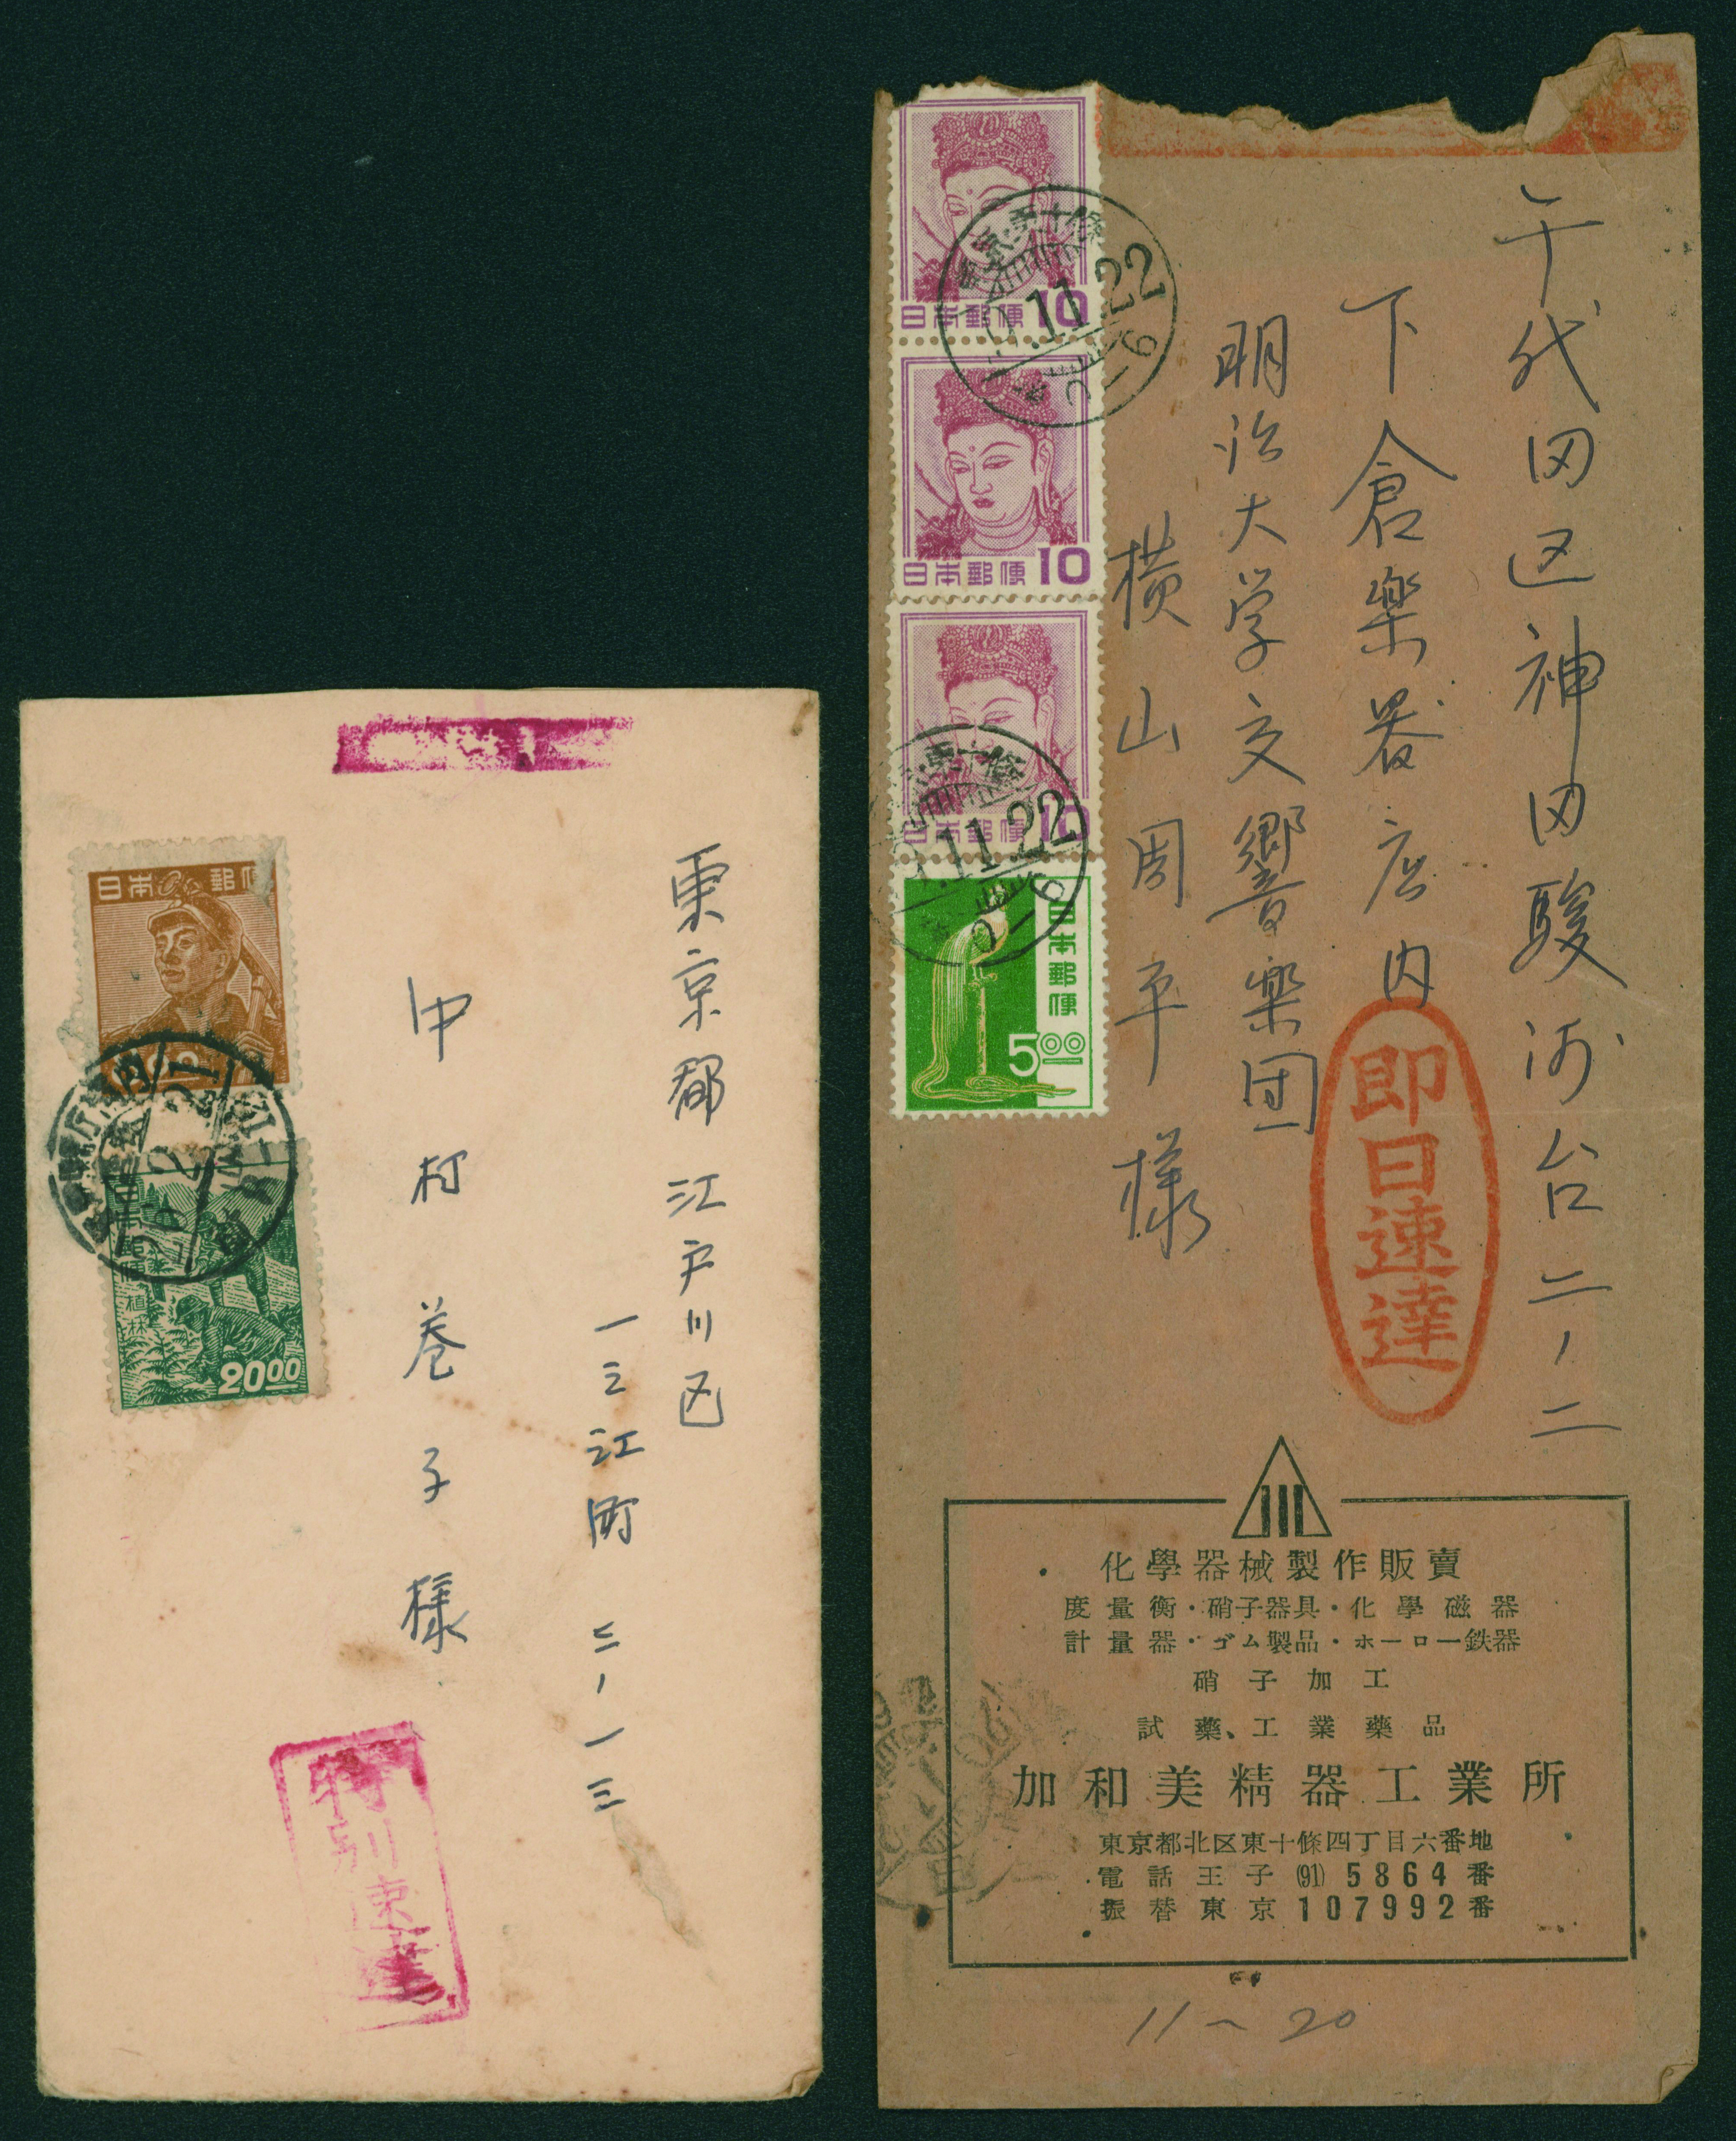 日本郵便
植林
20.00
東京都江戸川区
一之江町二ノ一三
中村巻子様
特別速達
日本郵便 10
日本郵便 10
日本郵便 10
日本郵便
5.00
11.22
11.22
千代田区神田駿河台二ノ二
下倉楽器店内
明治大学交響楽団
横山周平様
即日速達
化學器械製作販賣
度量衡・硝子器具・化學磁器
計量器・ゴム製品・ホーロー鉄器
硝子加工
試藥、工業藥品
加和美精器工業所
東京都北区東十條四丁目六番地
電話王子(91)5864番
振替東京107992番
11〜20